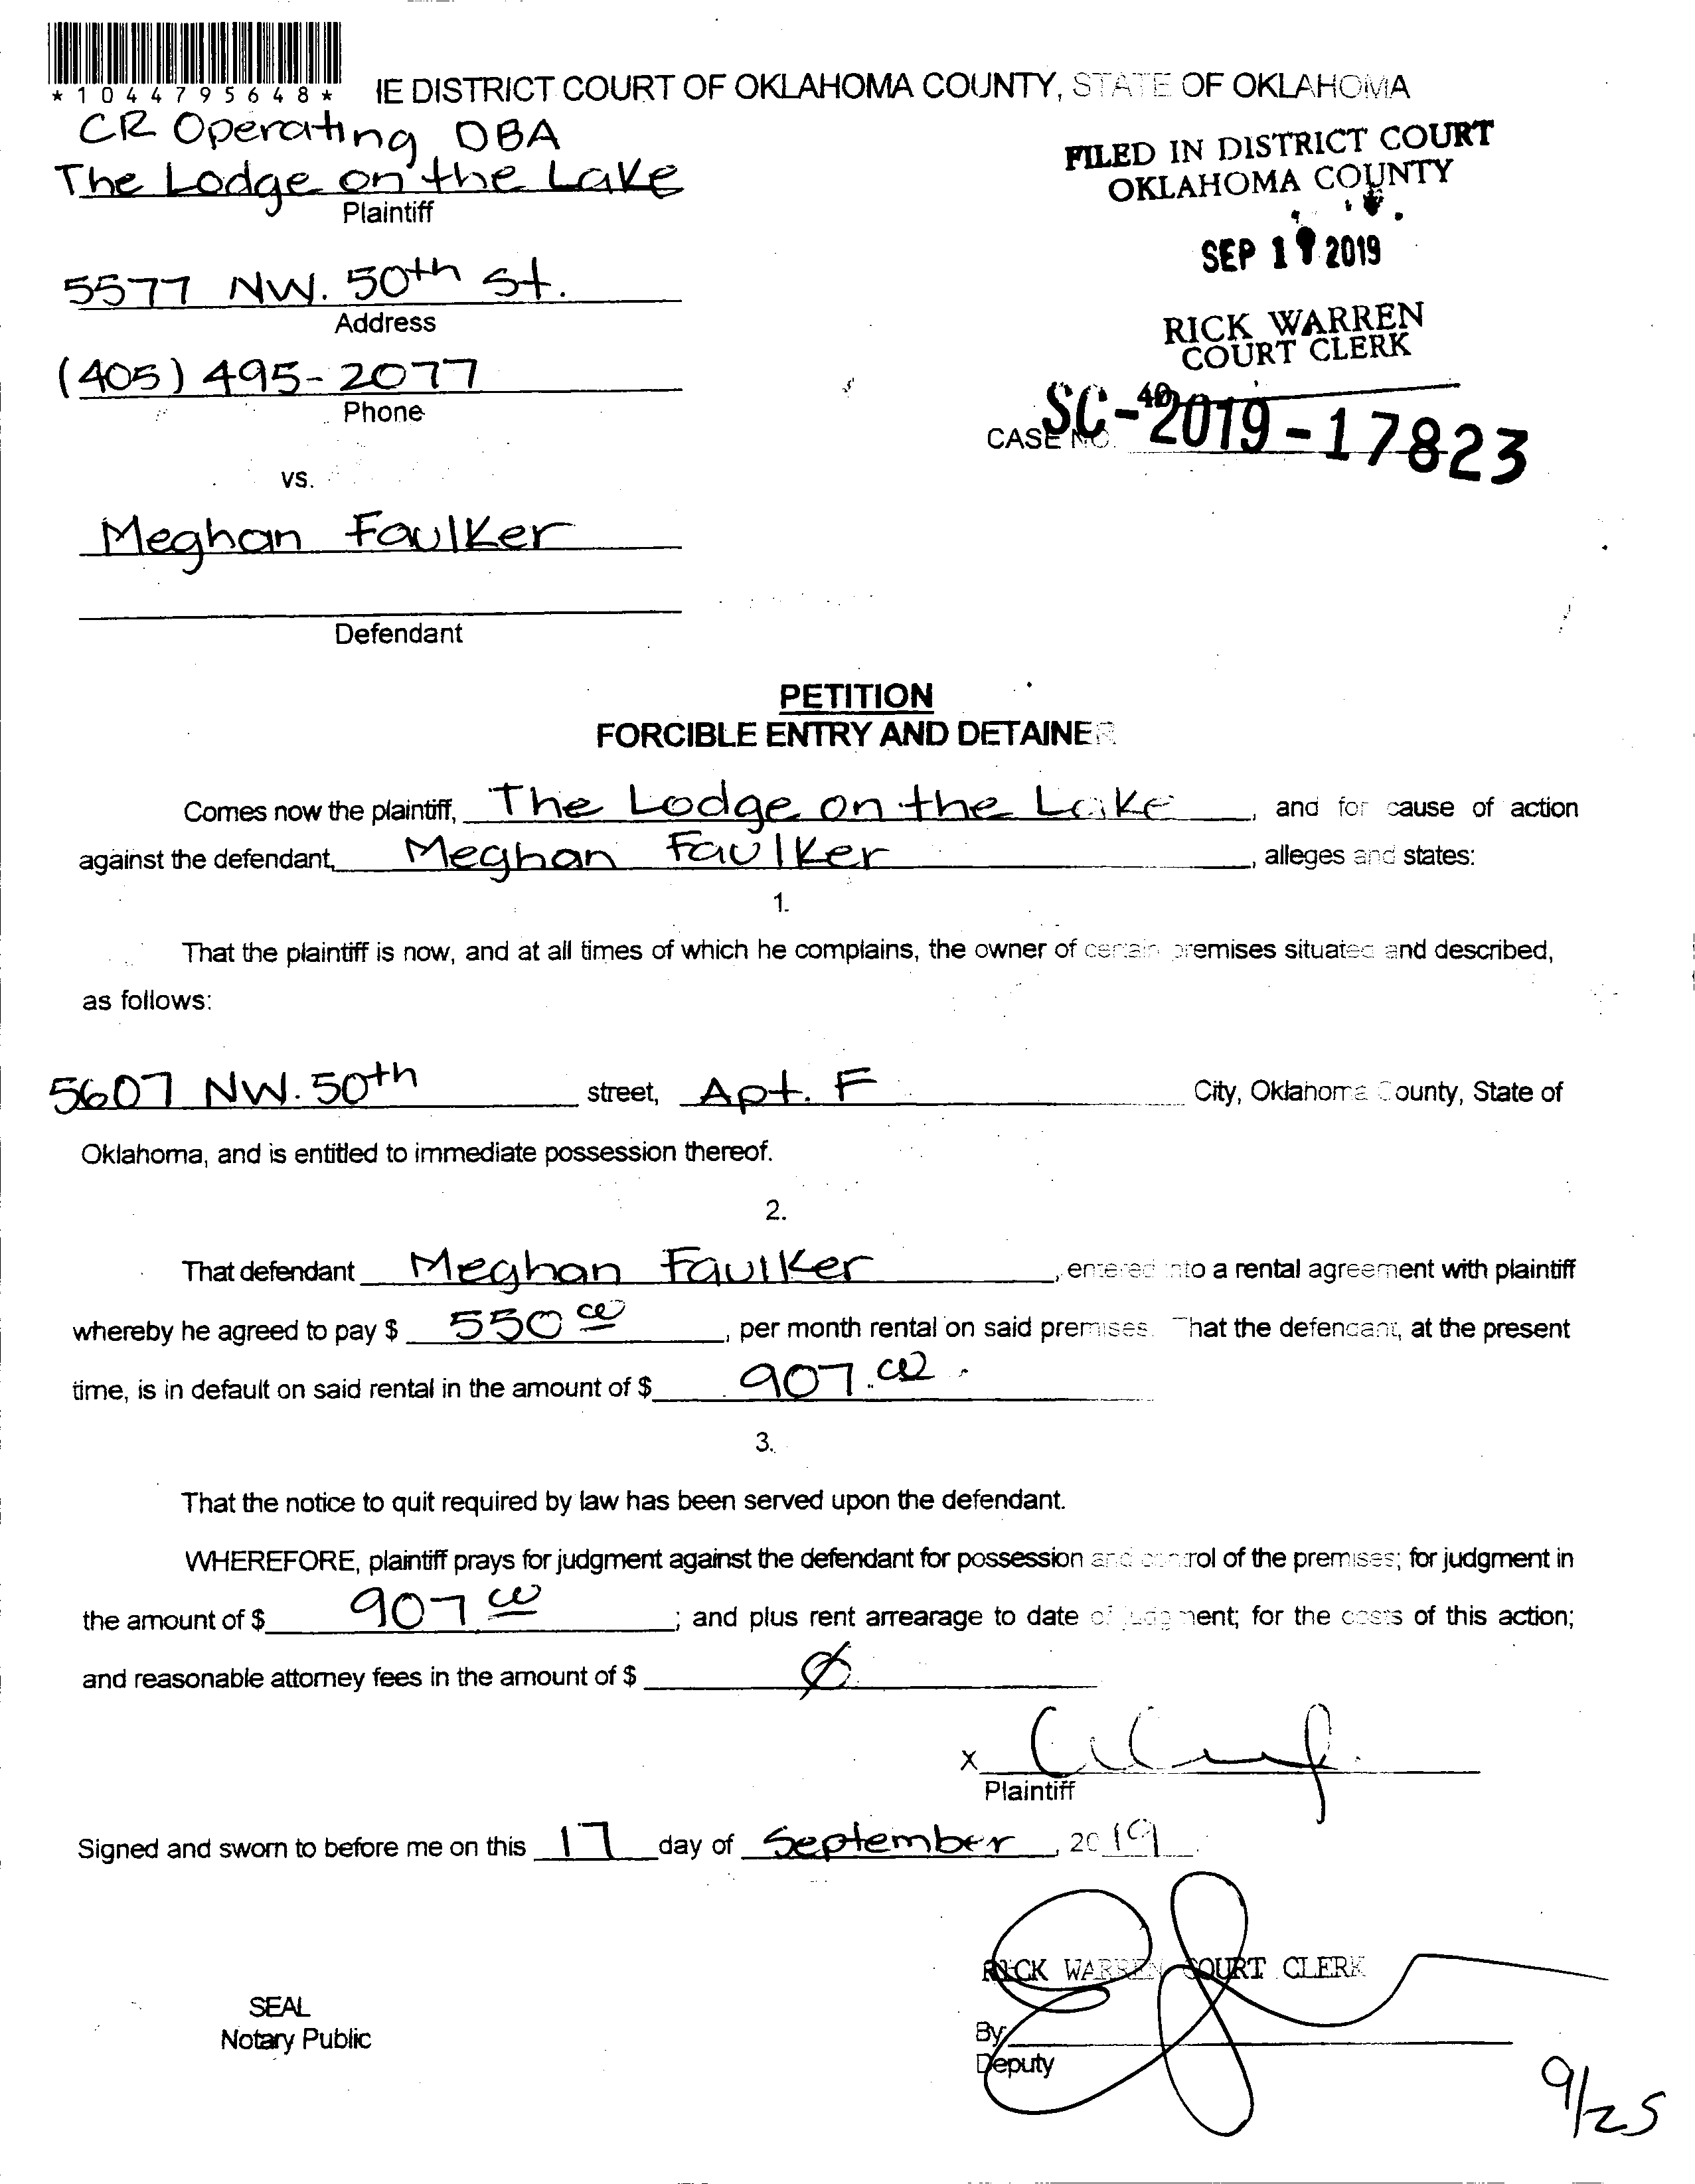 *1044795648*
IE DISTRICT COURT OF OKLAHOMA COUNTY, STATE OF OKLAHOMA
CR Operating DBA
The Lodge on the Lake
Plaintiff
FILED IN DISTRICT COURT
OKLAHOMA COUNTY
SEP 1 2019
RICK WARREN
COURT CLERK
40
5577 NW. 50th St.
Address
(405) 495-2077
Phone
CASE NO. SC-2019-17823
vs.
Meghan Faulker
Defendant
PETITION
FORCIBLE ENTRY AND DETAINER
Comes now the plaintiff, The Lodge on the Lake, and for cause of action
against the defendant, Meghan Faulker, alleges and states:
1.
That the plaintiff is now, and at all times of which he complains, the owner of certain premises situated and described,
as follows:
5607 NW. 50th street, Apt. F City, Oklahoma County, State of
Oklahoma, and is entitled to immediate possession thereof.
2.
That defendant Meghan Faulker, entered into a rental agreement with plaintiff
whereby he agreed to pay $ 550 00, per month rental on said premises. That the defendant, at the present
time, is in default on said rental in the amount of $ 907.00.
3.
That the notice to quit required by law has been served upon the defendant.
WHEREFORE, plaintiff prays for judgment against the defendant for possession and control of the premises; for judgment in
the amount of $ 907 00; and plus rent arrearage to date of judgment; for the costs of this action;
and reasonable attorney fees in the amount of $ Ø
X
Plaintiff
Signed and sworn to before me on this 17 day of September, 2019.
RICK WARREN COURT CLERK
SEAL
Notary Public
By
Deputy
9/25